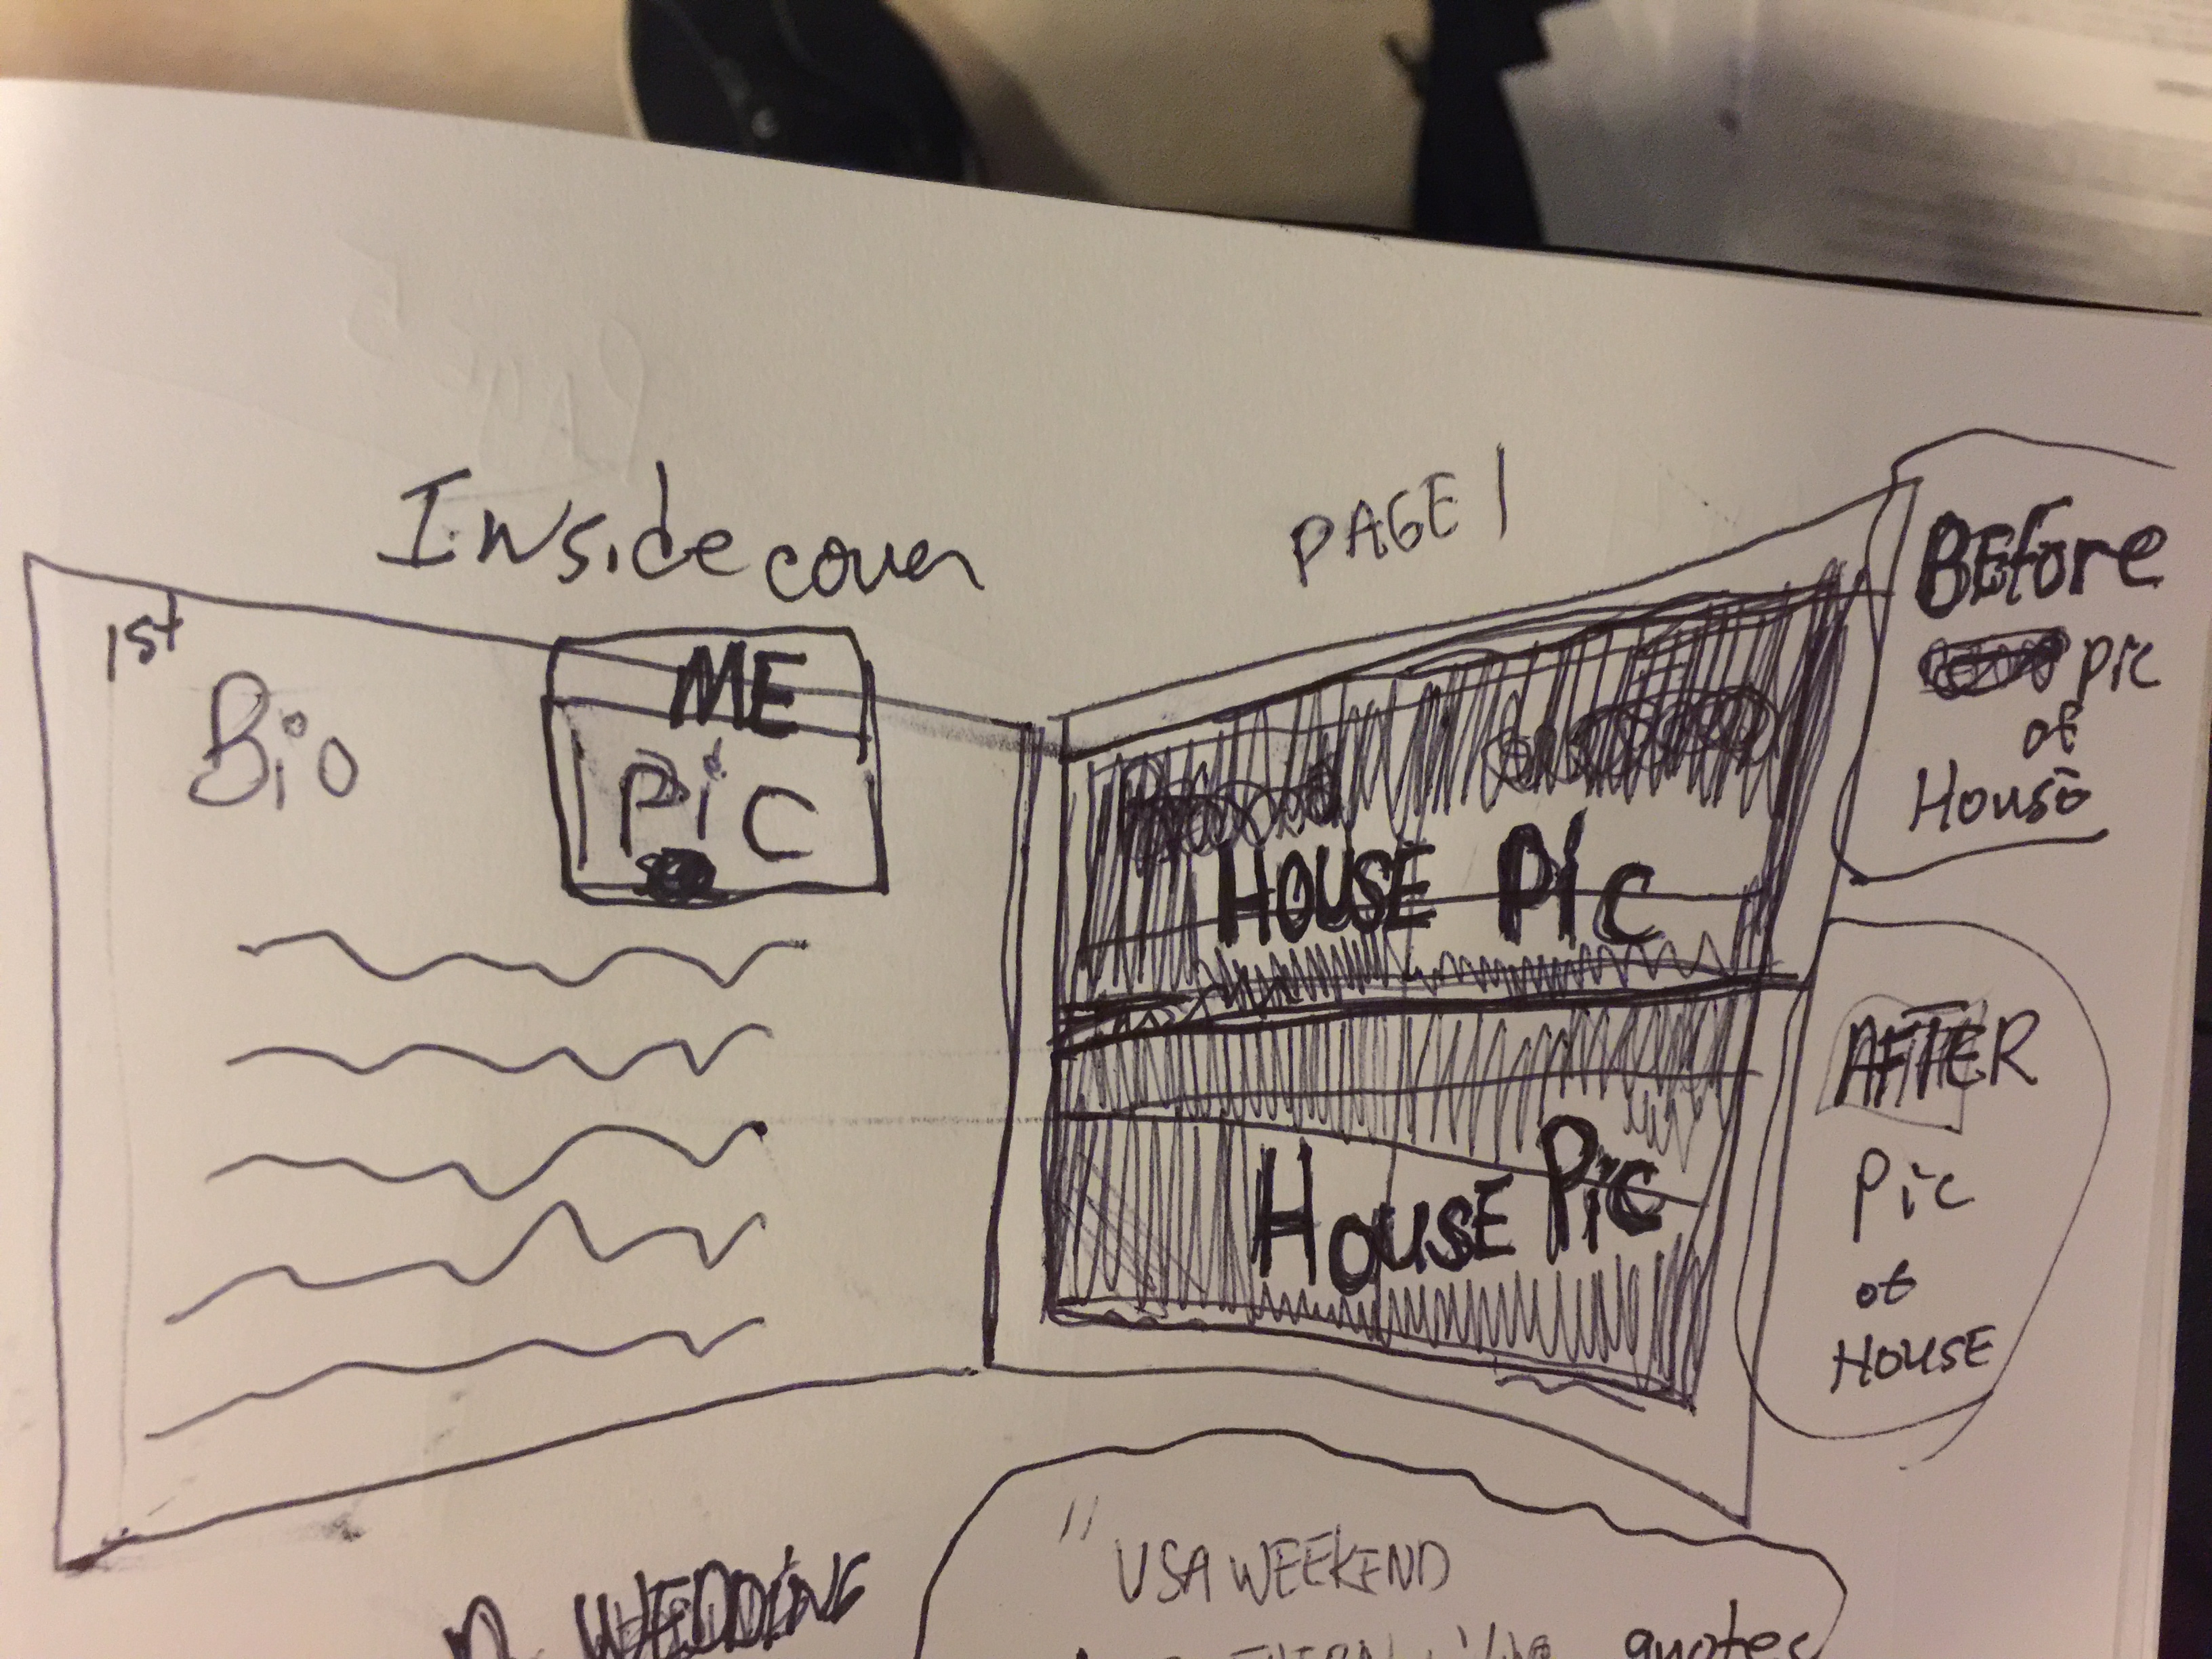 Inside cover
PAGE 1
1st
Bio
ME
Pic
HOUSE Pic
HOUSE Pic
BEfore
pic
of
House
AFTER
Pic
of
HOUSE
WEDDING
"USA WEEKEND
quotes